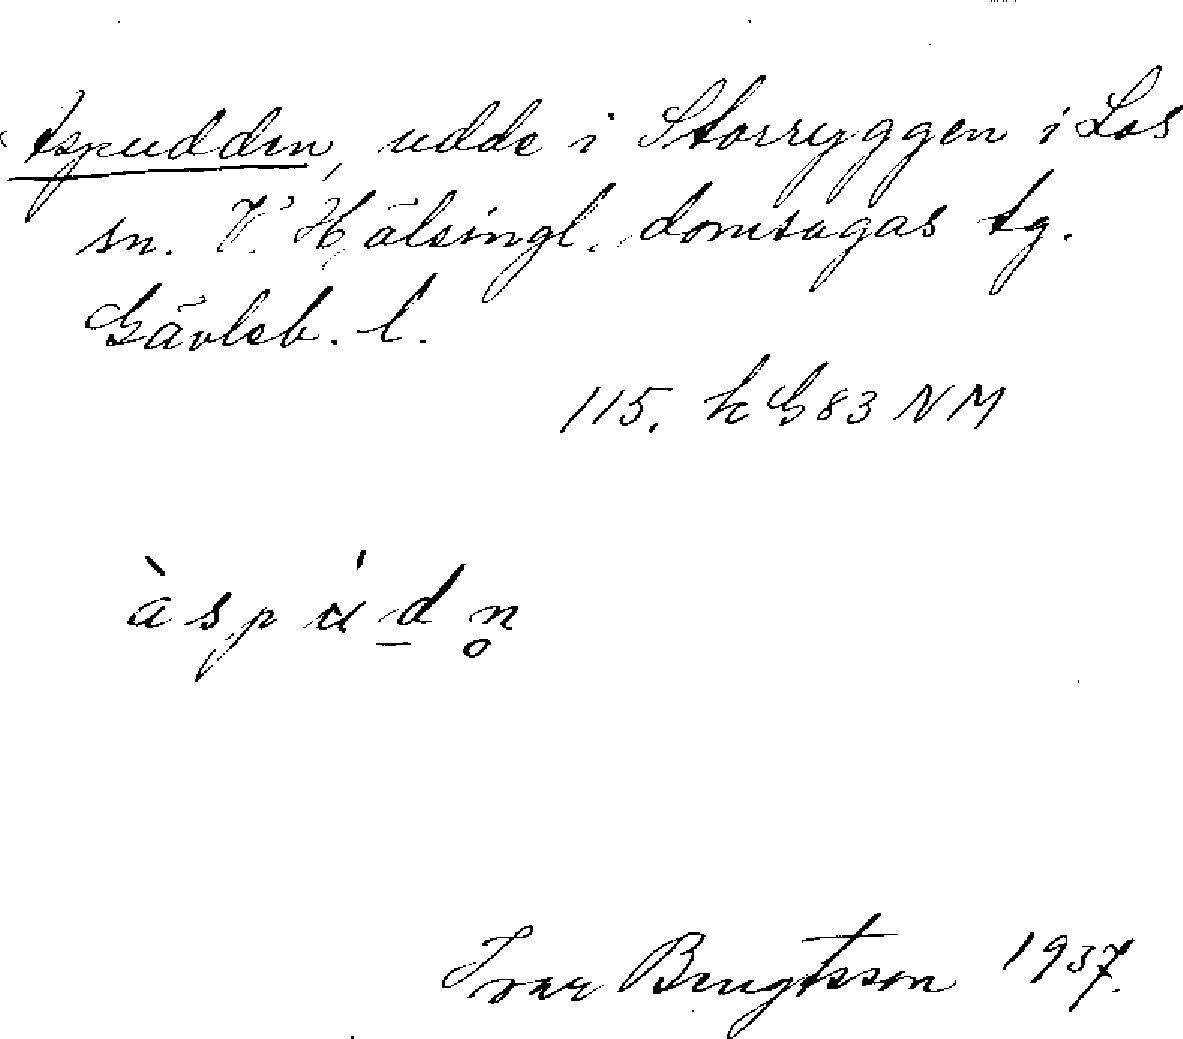 Aspudden, udde i Storryggen i Los
sn. V. Hälsingl. domsagas tg.
Gävleb. l.
115. k G 83 NM
àspu̇d̠n̥
Ivar Bengtsson 1937.